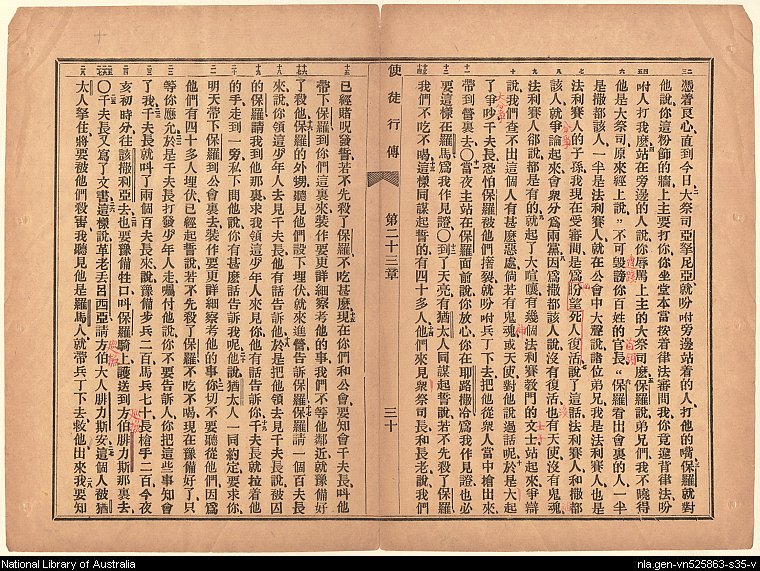 憑着良心直到今日大祭司亞拏尼亞就吩咐旁邊站着的人打他的嘴保羅就對
他說你這粉飾的牆上主要打你你坐堂本當按着律法審問我你竟違背律法吩
咐人打我麽站在旁邊的人說你辱罵上主的大祭司麽保羅說弟兄們我不曉得
他是大祭司原來經上說不可毀謗你百姓的官長保羅看出會裏的人一半
是撒都該人一半是法利賽人就在公會中大聲說諸位弟兄我是法利賽人也是
法利賽人的子孫我現在受審問是爲盼望死人復活說了這話法利賽人和撒都
該人就爭論起來會衆分爲兩黨因爲撒都該人說沒有復活也有天使沒有鬼魂
法利賽人卻說都是有的就起了大喧嚷有幾個法利賽教門的文士站起來爭辯
說我們查不出這個人有甚麽惡處倘若有鬼魂或天使對他說過話呢於是大起
了爭吵千夫長恐怕保羅被他們撦裂就吩咐兵丁下去把他從衆人當中搶出來
帶到營裏去〇當夜主站在保羅面前說你放心你在耶路撒冷爲我作見證也必
要這樣在羅馬爲我作見證〇到了天亮有猶太人同謀起誓說若不先殺了保羅
我們不吃不喝這樣同謀起誓的有四十多人他們來見衆祭司長和長老說我們
使徒行傳
第二十三章
三十
已經賭呪發誓若不先殺了保羅不吃甚麽現在你們和公會要知會千夫長叫他
帶下保羅到你們這裏來裝作要更詳細察考他的事我們不等他鄰近就豫備好
了殺他保羅的外甥聽見他們設下埋伏就來進營告訴保羅保羅請一個百夫長
來說你領這少年人去見千夫長他有話告訴他於是把他領去見千夫長說被囚
的保羅請我到他那裏求我領這少年人來見你他有話告訴你千夫長就拉着他
的手走到一旁私下問他說你有甚麽話告訴我呢他說猶太人一同約定要求你
明天帶下保羅到公會裏去裝作要更詳細察考他的事你切不要聽從他們因爲
他們有四十多人埋伏已經起誓說若不先殺了保羅不吃不喝現在豫備好了只
等你應允於是千夫長打發少年人走囑付他說你不要告訴人你把這些事知會
了我千夫長就叫了兩個百夫長來說豫備步兵二百馬兵七十長槍手二百今夜
亥初時分往該撒利亞去也要豫備牲口叫保羅騎上護送到方伯腓力斯那裏去
〇千夫長又寫了文書這樣說革老丟呂西亞請方伯大人腓力斯安這個人被猶
太人拏住將要被他們殺害我聽見他是羅馬人就帶兵丁下去救他出來我要知
National Library of Australia
nla.gen-vn525863-s35-v